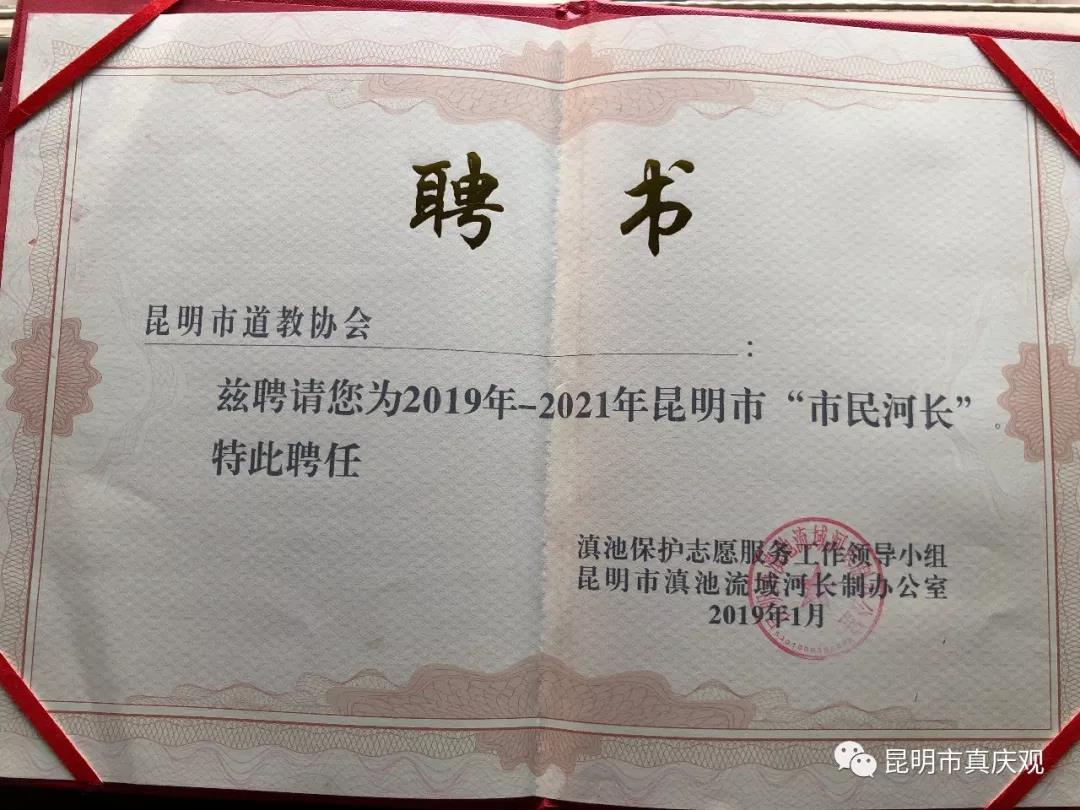 聘书
昆明市道教协会:
兹聘请您为2019年-2021年昆明市“市民河长”。
特此聘任
滇池保护志愿服务工作领导小组
昆明市滇池流域河长制办公室
2019年1月
昆明市真庆观